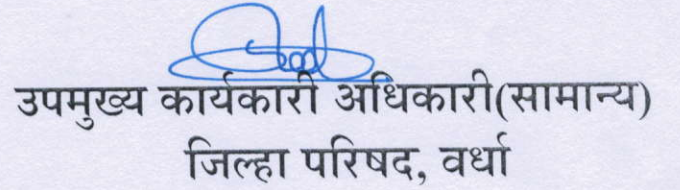 उपमुख्य कार्यकारी अधिकारी(सामान्य)
जिल्हा परिषद, वर्धा